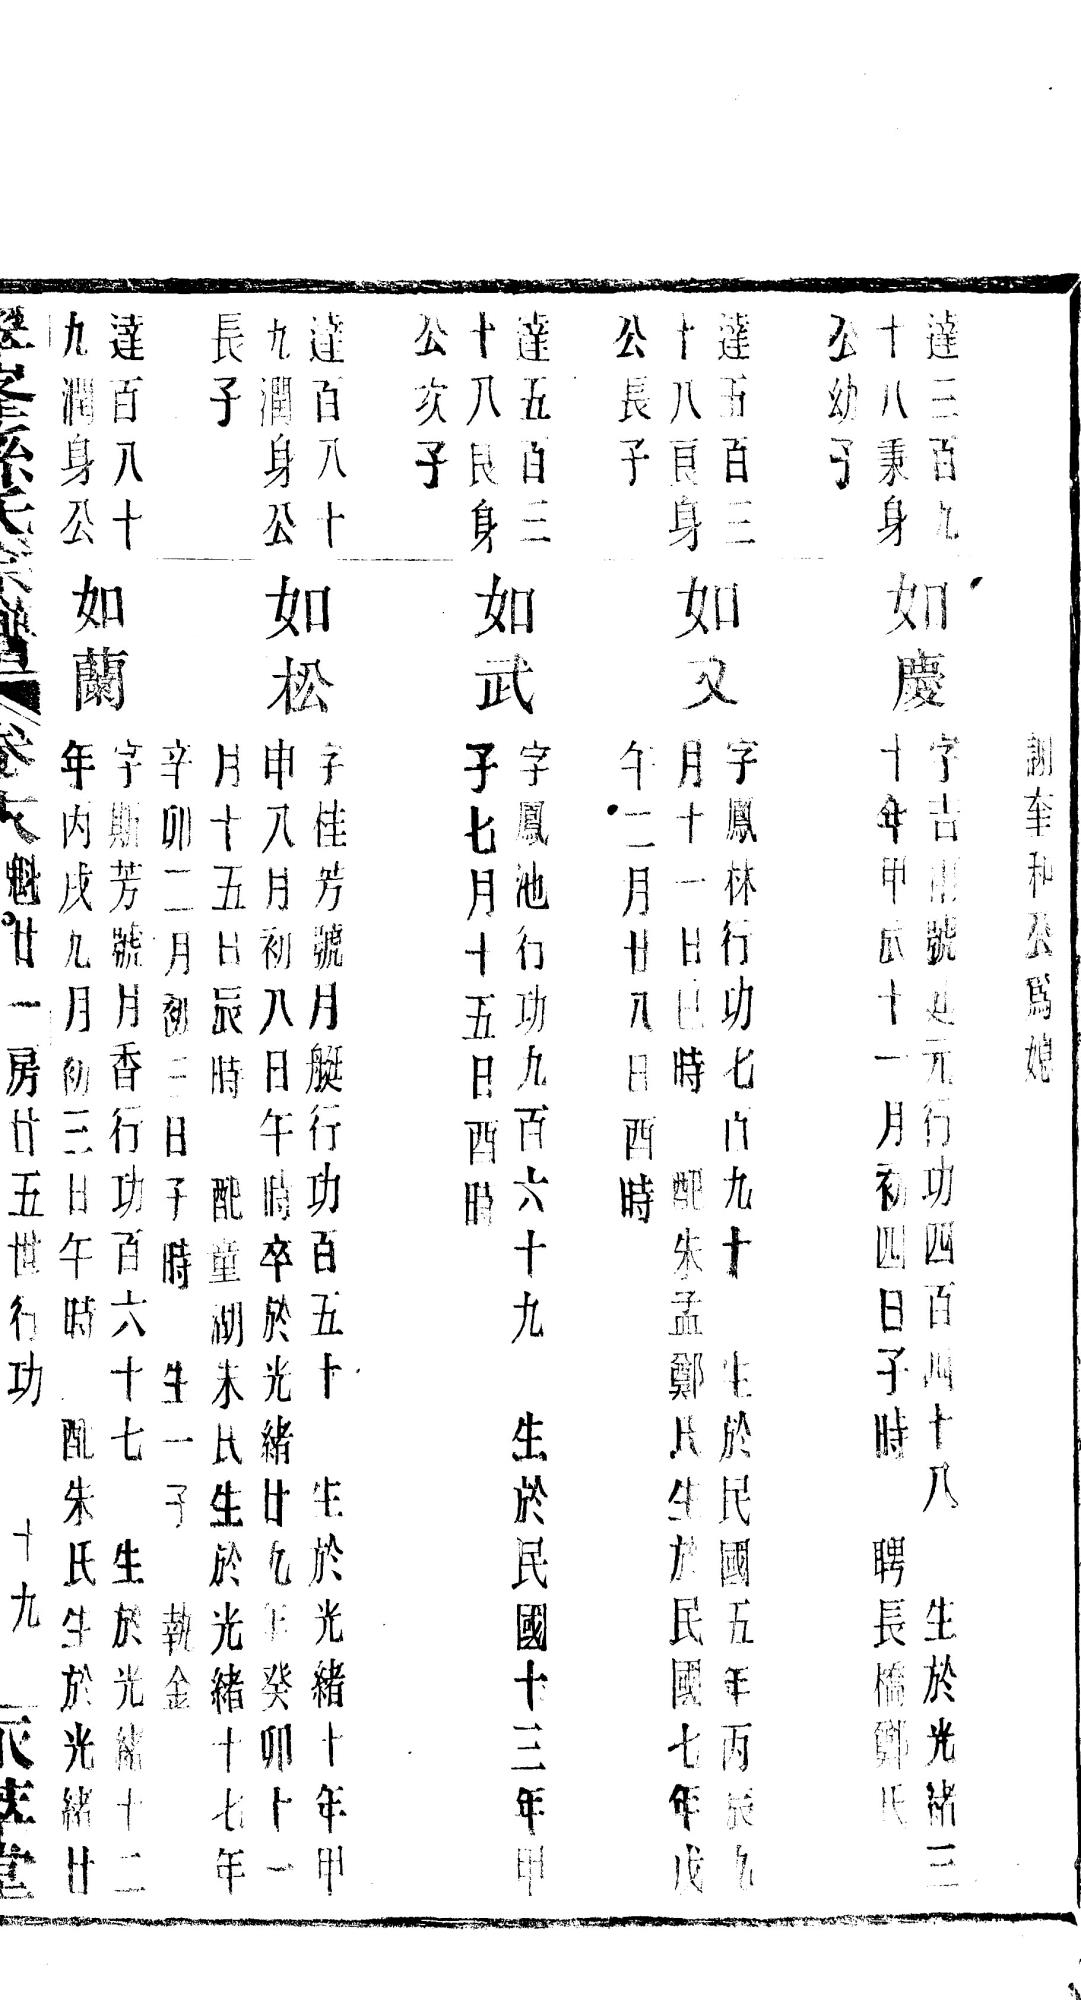 謝奎和公為媳
達三百九
十八秉身
公幼子
如慶
字吉 號 元行功四百四十八 生於光緒三
十年甲辰十一月初四日子時 聘長橋鄭氏
達五百三
十八良身
公長子
如文
字鳳林行功七百九十 生於民國五年丙辰九
月十一日巳時 配朱孟鄭氏生於民國七年戊
午二月廿八日酉時
達五百三
十八良身
公次子
如武
字鳳池行功九百六十九 生於民國十三年甲
子七月十五日酉時
達百八十
九潤身公
長子
如松
字桂芳號月艇行功百五十 生於光緒十年甲
申八月初八日午時卒於光緒廿九年癸卯十一
月十五日辰時 配童湖朱氏生於光緒十七年
辛卯二月初二日子時 生一子 執金
達百八十
九潤身公
如蘭
字斯芳號月香行功百六十七 生於光緒十二
年丙戌九月初三日午時 配朱氏生於光緒廿
孫氏宗譜 卷六 魁廿一房廿五世行功 十九 堂